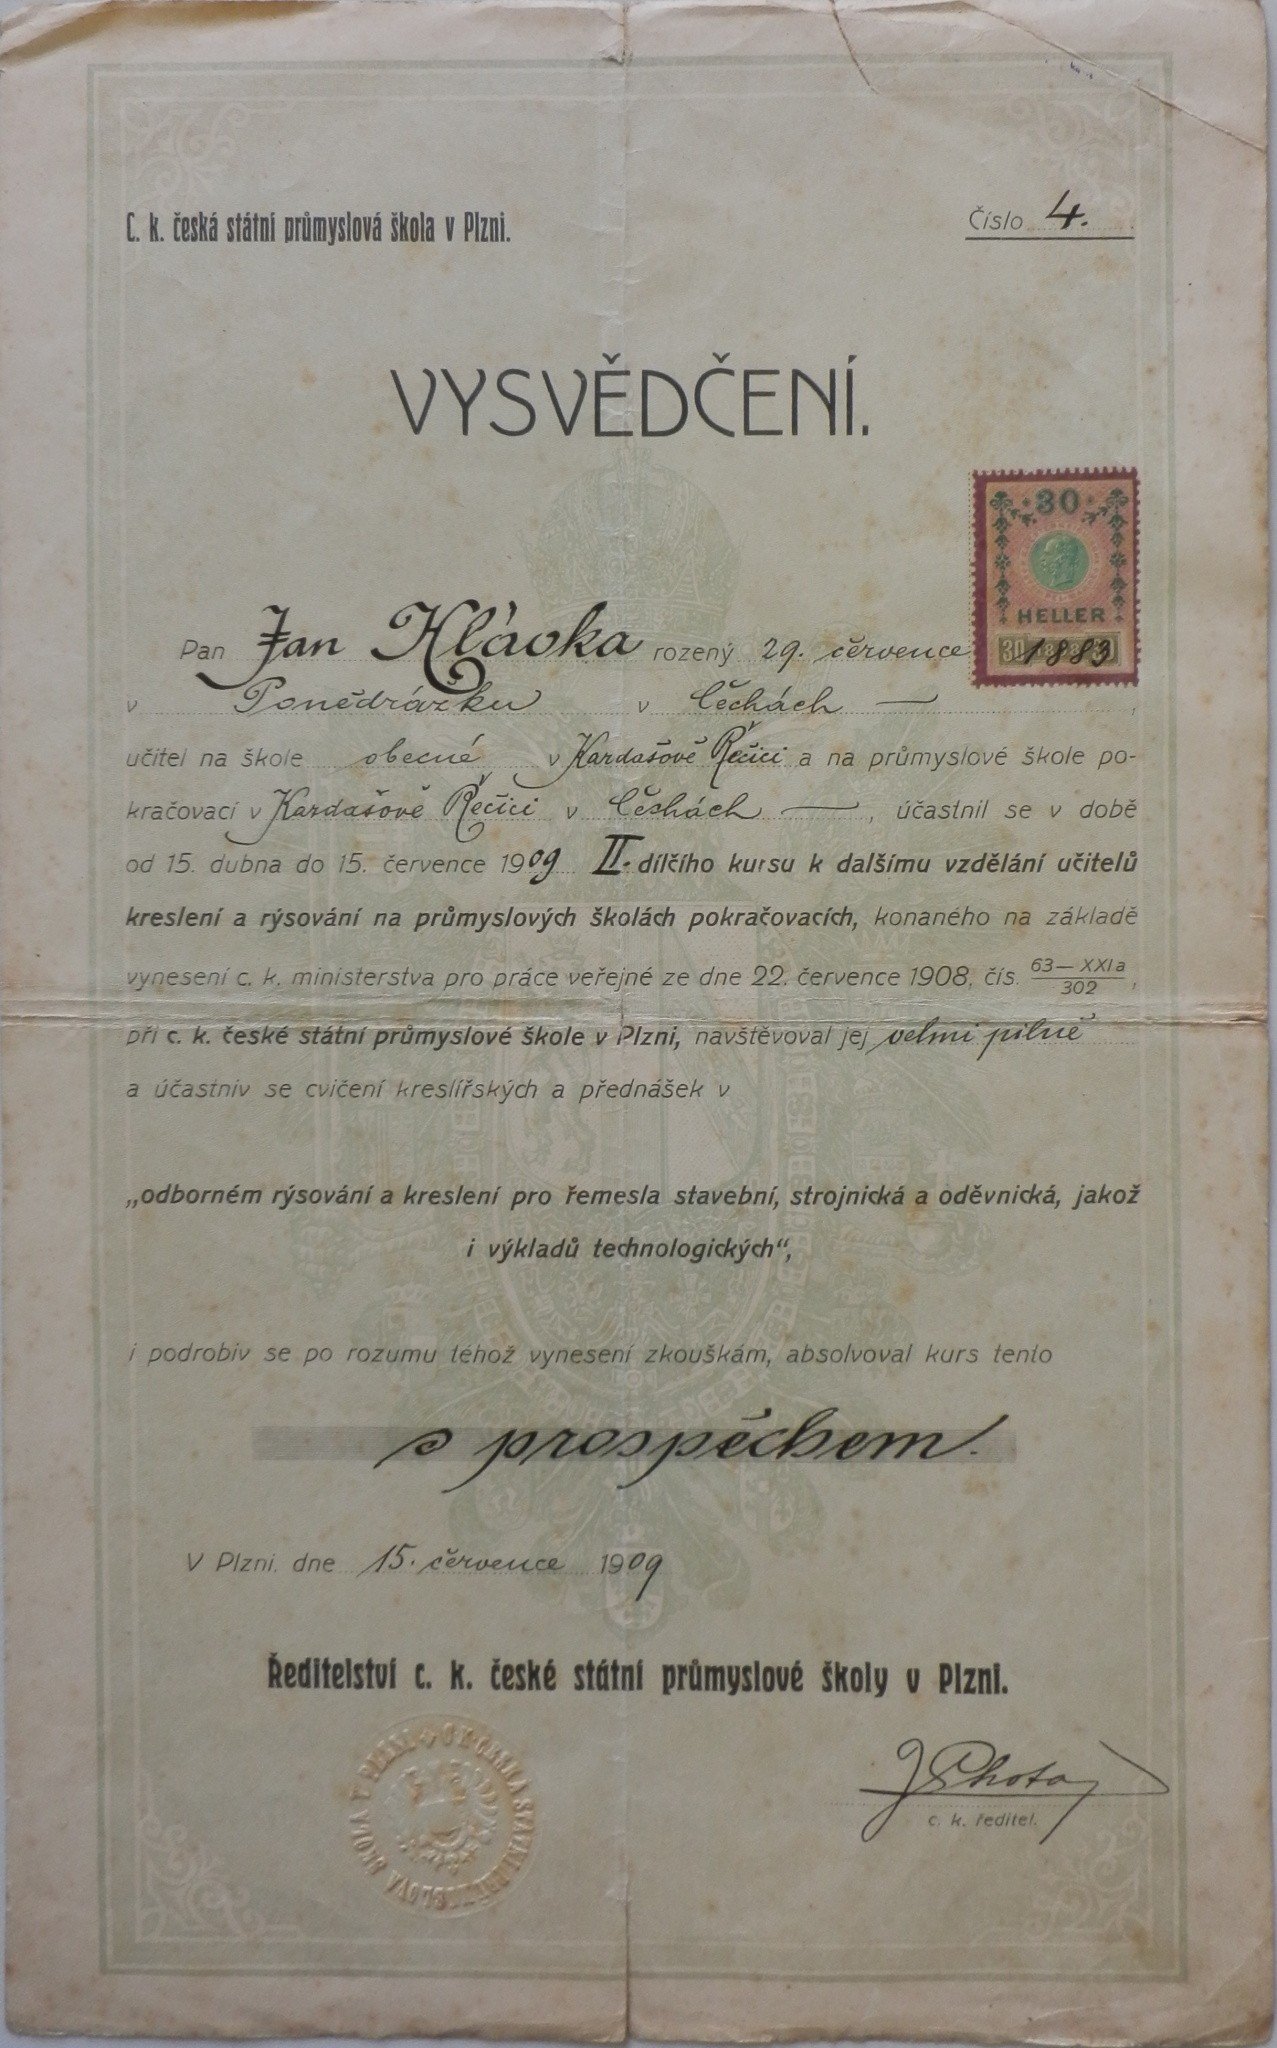 C. k. česká státní průmyslová škola v Plzni.
Číslo 4.
VYSVĚDČENÍ.
30
HELLER
Pan Jan Hlávka rozený 29. července 1883
v Ponědrážku v Čechách —,
učitel na škole obecné v Kardašově Řečici a na průmyslové škole po-
kračovací v Kardašově Řečici v Čechách —, účastnil se v době
od 15. dubna do 15. července 1909 II. dílčího kursu k dalšímu vzdělání učitelů
kreslení a rýsování na průmyslových školách pokračovacích, konaného na základě
vynesení c. k. ministerstva pro práce veřejné ze dne 22. července 1908, čís. 63—XXIa/302,
při c. k. české státní průmyslové škole v Plzni, navštěvoval jej velmi pilně
a účastniv se cvičení kreslířských a přednášek v
„odborném rýsování a kreslení pro řemesla stavební, strojnická a oděvnická, jakož
i výkladů technologických“,
i podrobiv se po rozumu téhož vynesení zkouškám, absolvoval kurs tento
s prospěchem.
V Plzni, dne 15. července 1909
Ředitelství c. k. české státní průmyslové školy v Plzni.
C. K. ČESKÁ STÁTNÍ PRŮMYSLOVÁ ŠKOLA V PLZNI
c. k. ředitel.